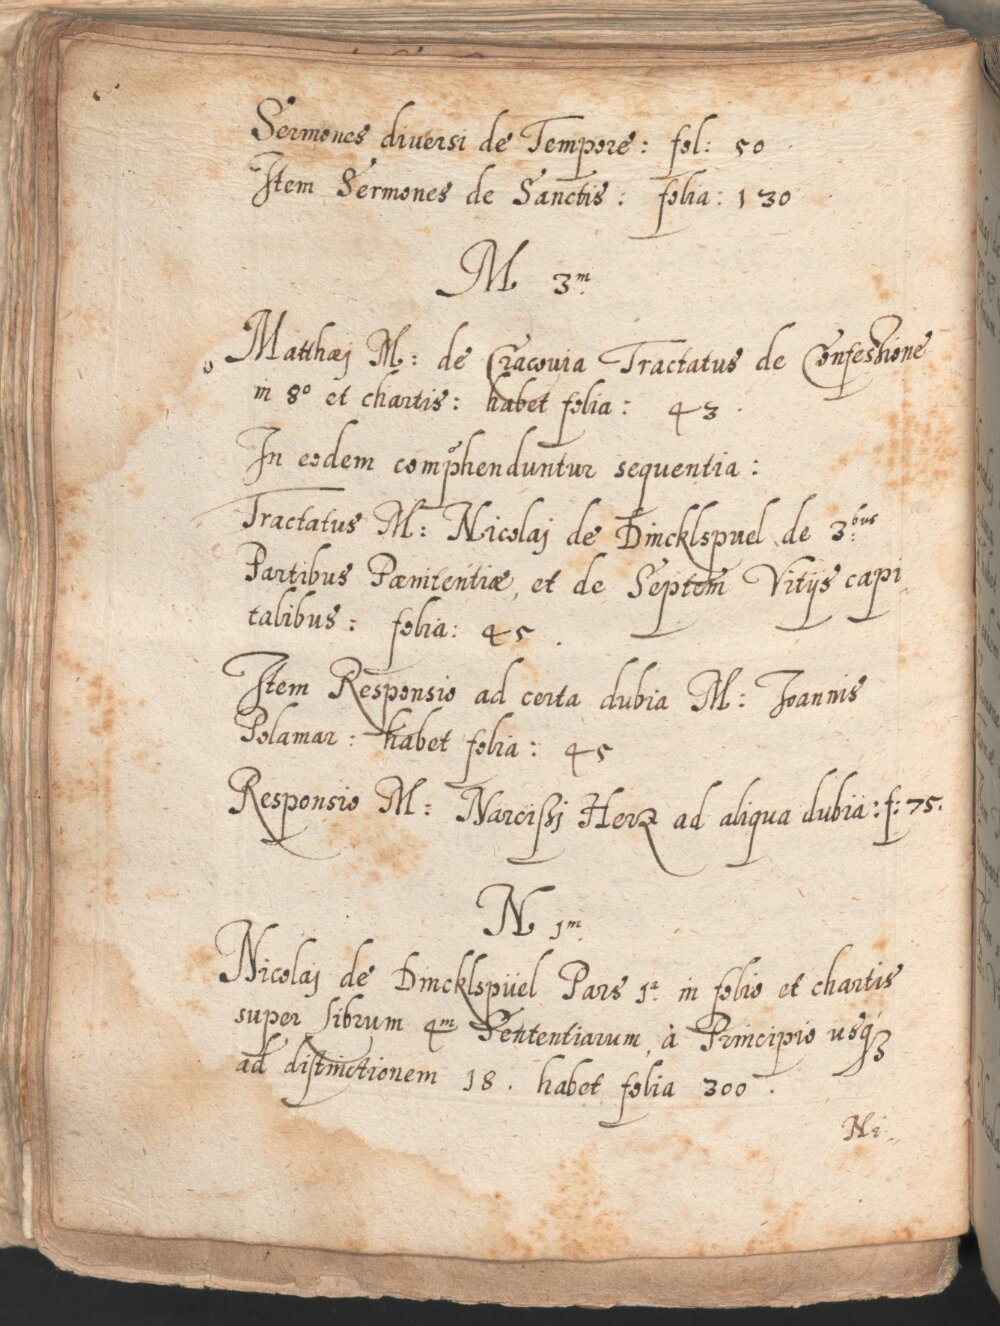 Sermones diversi de Tempore: fol: 50.
Item Sermones de Sanctis: folia: 130.
M 3.m
Matthæj M: de Cracovia Tractatus de Confessione
in 8º et chartis: habet folia: 43.
In eodem comp̃henduntur sequentia:
Tractatus M: Nicolaj de Dincklspuel de 3.bus
Partibus Pænitentiæ, et de Septem Vitijs capi
talibus: folia: 45.
Item Responsio ad certa dubia M: Joannis
Polamar: habet folia: 45
Responsio M: Narcißj Herz ad aliqua dubia: f: 75.
N 1.m
Nicolaj de Dincklspüel Pars 1.a in folio et chartis
super librum 4.m Sententiarum, à Principio usq3
ad distinctionem 18. habet folia 300.
Ni.